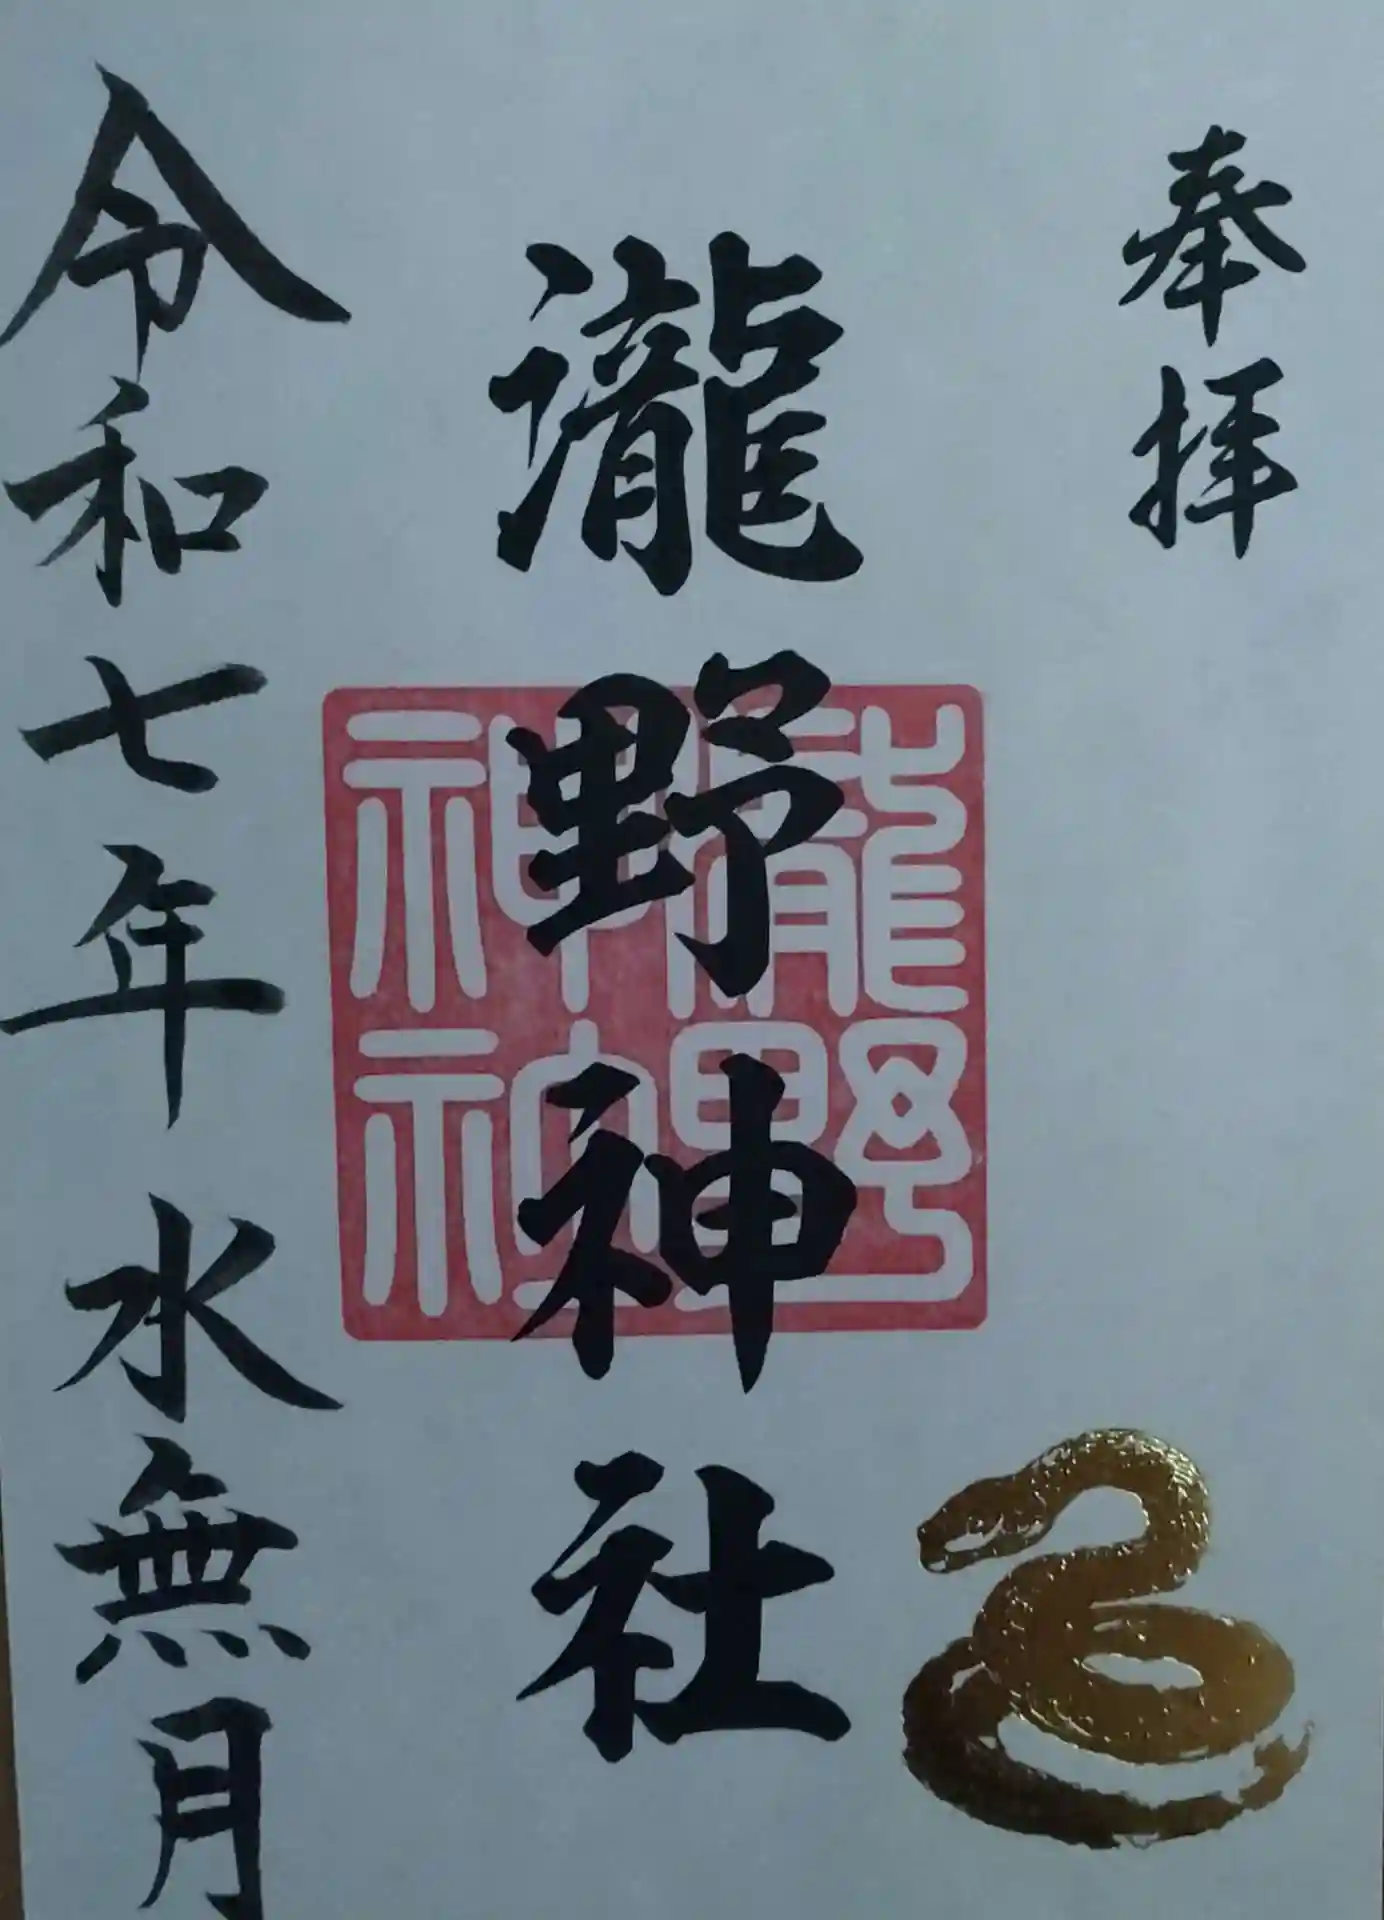 奉拝
瀧野神社
瀧野神社
令和七年水無月